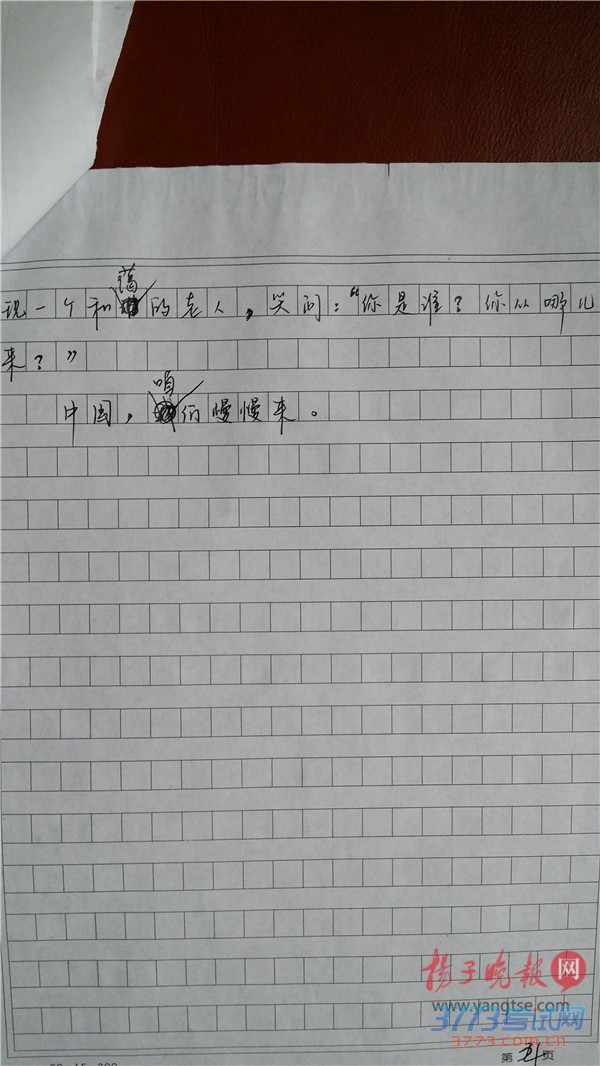 现一个和蔼的老人，笑问：“你是谁？你从哪儿
来？”
中国，咱们慢慢来。
扬子晚报网
www.yangtse.com
3773考试网
3773.com.cn
第 页